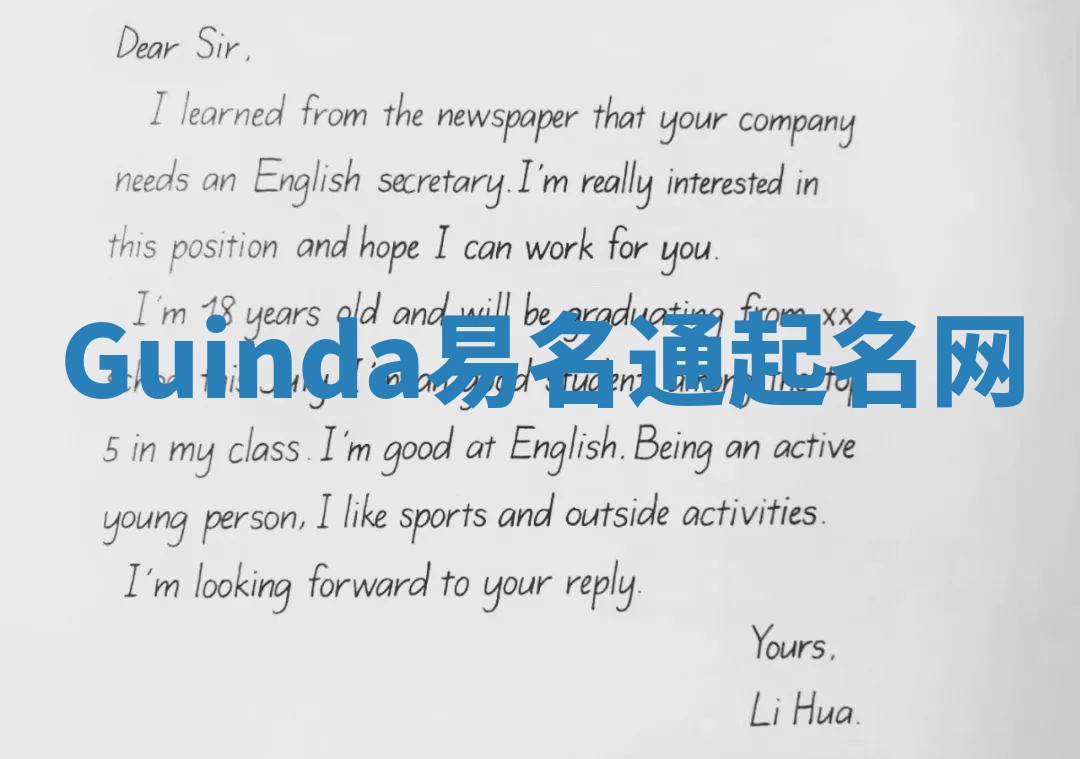 Dear Sir,
I learned from the newspaper that your company
needs an English secretary. I'm really interested in
this position and hope I can work for you.
I'm 18 years old and will be graduating from xx
Guinda易名通起名网
this July. I'm student among the top
5 in my class. I'm good at English. Being an active
young person, I like sports and outside activities.
I'm looking forward to your reply.
Yours,
Li Hua.